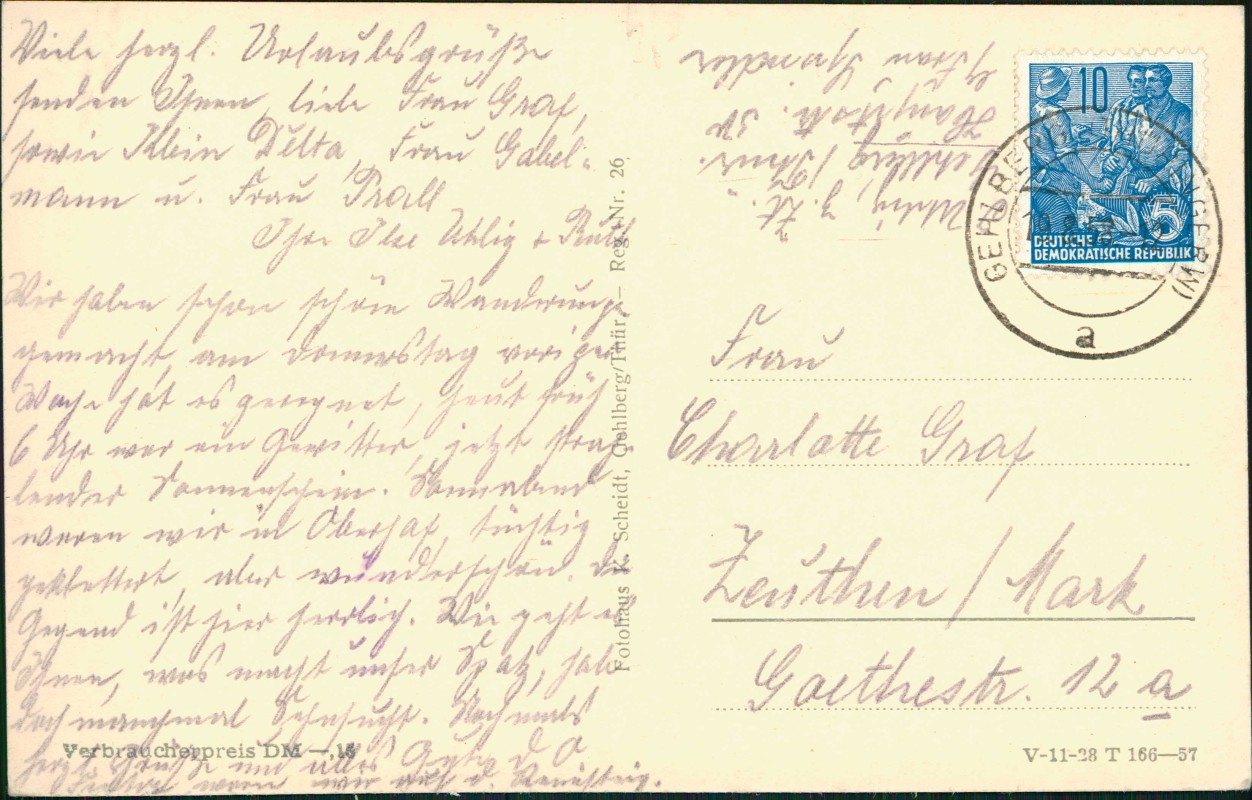 Viele herzl. Urlaubsgrüße
senden Ihnen, liebe Frau Graf,
sowie Klein Delta, Frau Gabel-
mann u. Frau Prall
Ihre Ilse Uhlig + Ruth
Wir haben schon schöne Wanderunge
gemacht, am Donnerstag voriger
Woche hat es geregnet, heut früh
6 Uhr war ein Gewitter, jetzt strah-
lender Sonnenschein. Sonnabend
waren wir in Oberhof, tüchtig
geklettert, aber wunderschön. Die
Gegend ist hier herrlich. Wie geht es
Ihnen, was macht unser Spatz, hab
doch manchmal Sehnsucht. Nochmals
herzl. Grüße und alles Gute d. O
waren wir auf d.
Verbraucherpreis DM —,15
Fotohaus K. Scheidt, Gehlberg/Thür. — Reg.-Nr. 26
Uhlig, z. Zt.
Gehlberg / Thür.
Hauptstr. 30
b/ Frau
10
5
DEUTSCHE
DEMOKRATISCHE REPUBLIK
GEHLBERG
a
Frau
Charlotte Graf
Zeuthen / Mark
Goethestr. 12 a
V-11-28 T 166—57